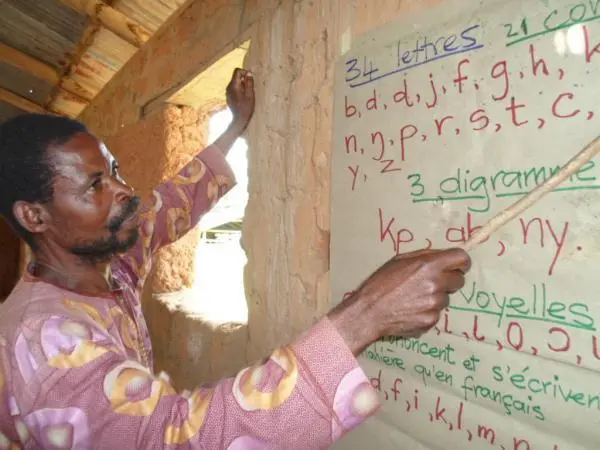 34 lettres 21 con
b, d, ɖ, j, f, g, h, k
n, ŋ, p, r, s, t, c,
y, z
3 digramme
kp, gb, ny.
Voyelles
i, ɩ, o, ɔ,
prononcent et s'écriven
manière qu'en français
d, f, i, k, l, m, n